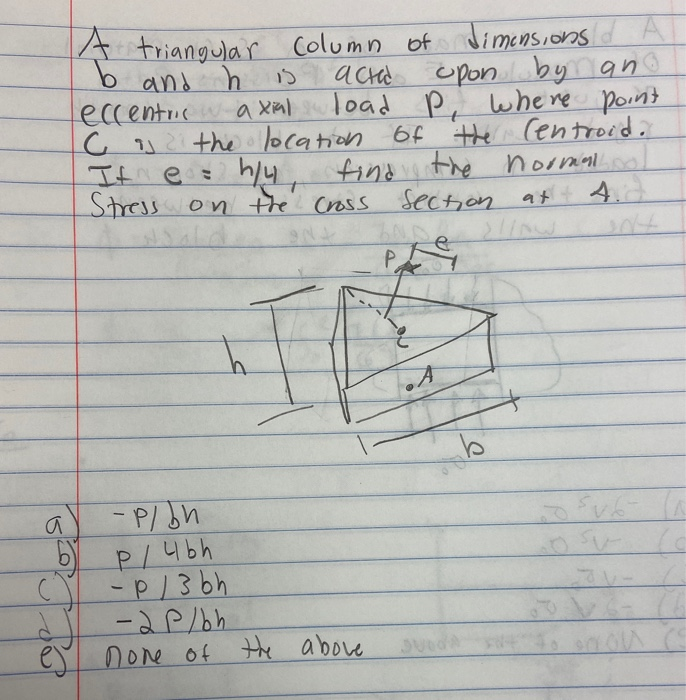 A triangular column of dimensions
b and h is acted upon by an
eccentric axial load P, where point
C is the location of the centroid.
If e = h/4, find the normal
Stress on the cross section at A.
e
P
C
h
A
b
a) -P/bh
b) P/4bh
c) -P/3bh
d) -2P/bh
e) none of the above